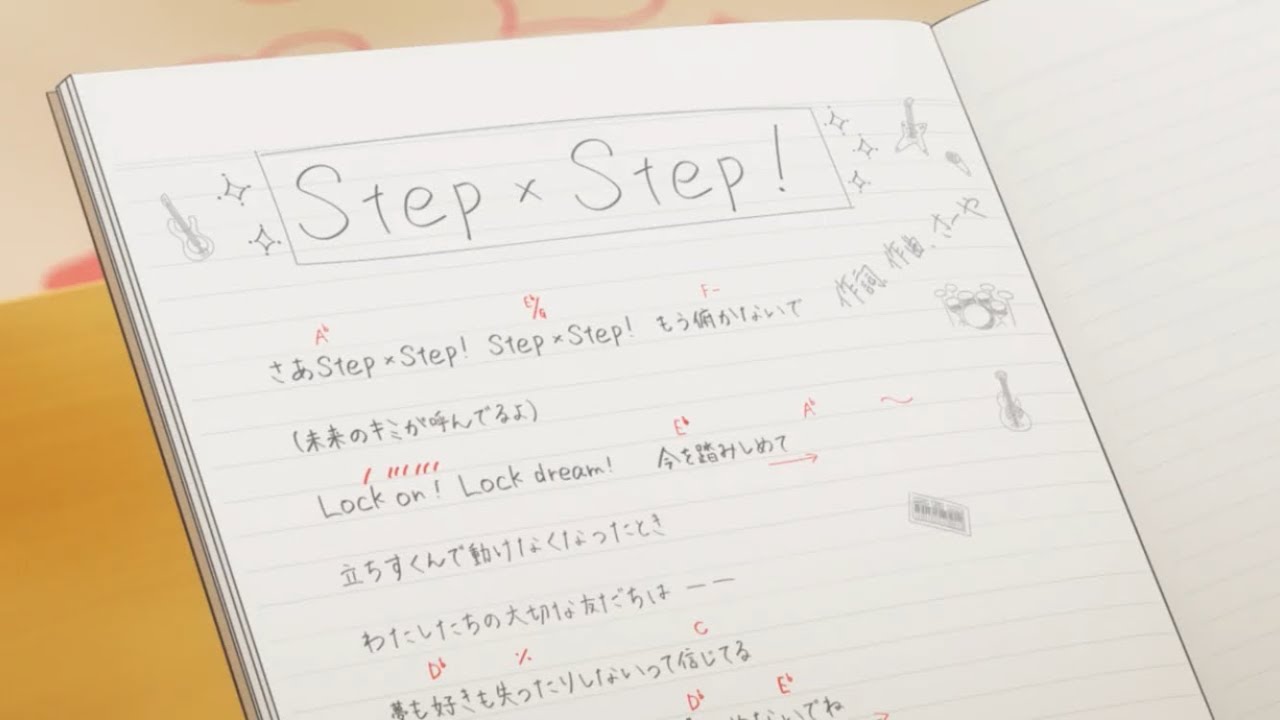 Step × Step!
作詞、作曲、さーや
A♭ E♭/G F-
さあStep×Step! Step×Step! もう俯かないで
(未来のキミが呼んでるよ)
E♭ A♭ 〜
Lock on! Lock dream! 今を踏みしめて
立ちすくんで動けなくなったとき
わたしたちの大切な友だちは ーー
D♭ ٪ C
夢も好きも失ったりしないって信じてる
D♭ E♭
ないでね